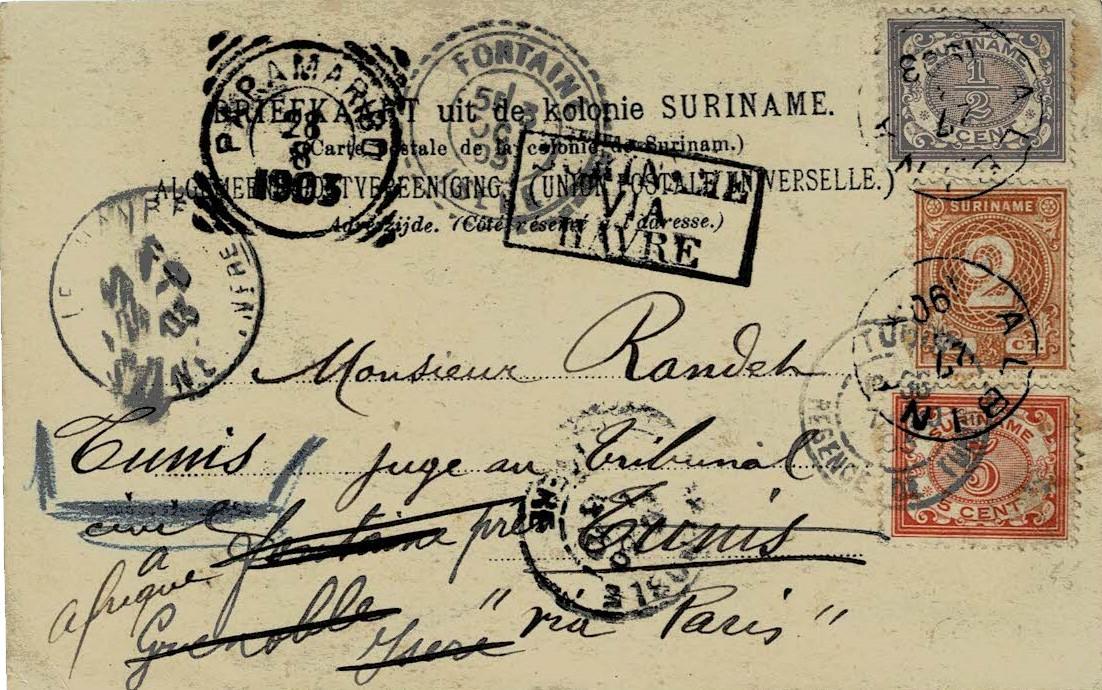 BRIEFKAART uit de kolonie SURINAME.
(Carte postale de la colonie de Surinam.)
ALGEMEENE POSTVEREENIGING. (UNION POSTALE UNIVERSELLE.)
Adreszijde. (Côté réservé à l'adresse.)
PARAMARIBO
28
8
1903
FONTAIN
VIA
HAVRE
SURINAME
1/2
CENT
SURINAME
2
CT
SURINAME
5
5 CENT
ALBINA
ALBINA
TUNIS
REGENCE
Monsieur Randet
Tunis juge au Tribunal
civil
a fontaine près Tunis
afrique
Grenoble Isere "via Paris"